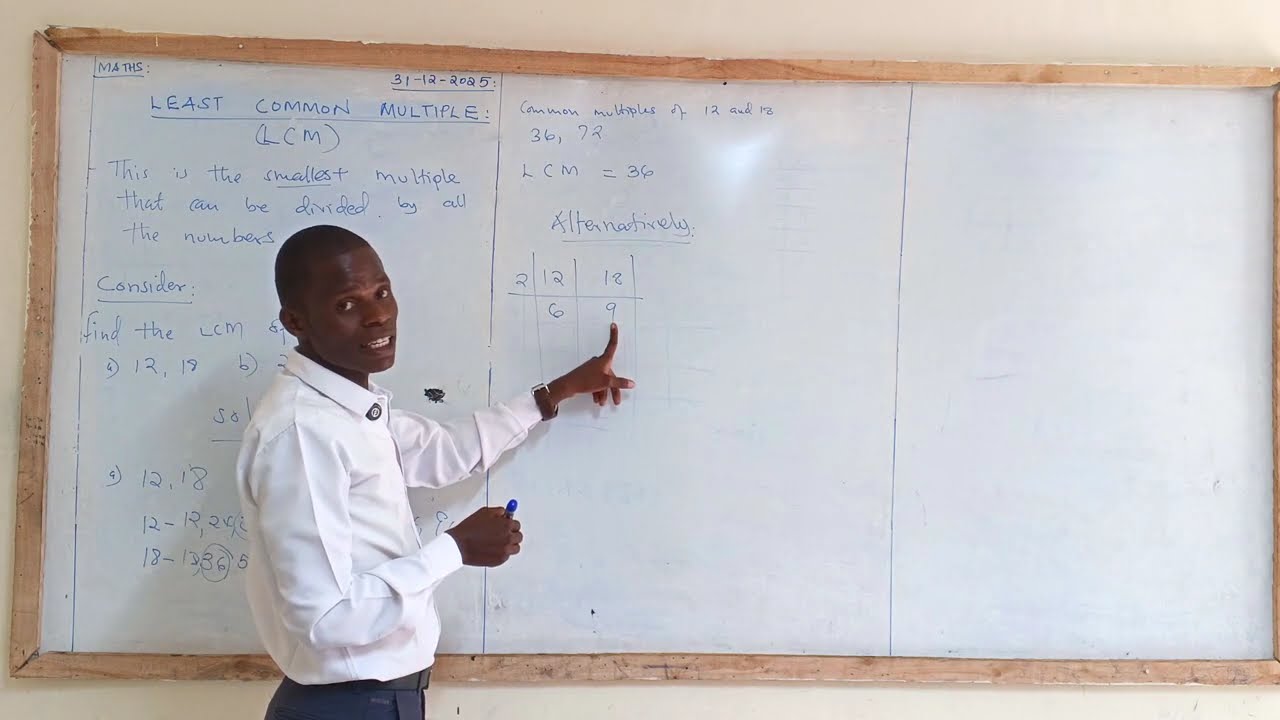 MATHS:
31-12-2025:
LEAST COMMON MULTIPLE:
(LCM)
This is the smallest multiple
that can be divided by all
the numbers
Consider:
find the LCM
a) 12, 18 b)
sol
a) 12, 18
12 - 12, 24,
18 - 18, 36, 5
Common multiples of 12 and 18
36, 72
LCM = 36
Alternatively:
2 12 18
6 9